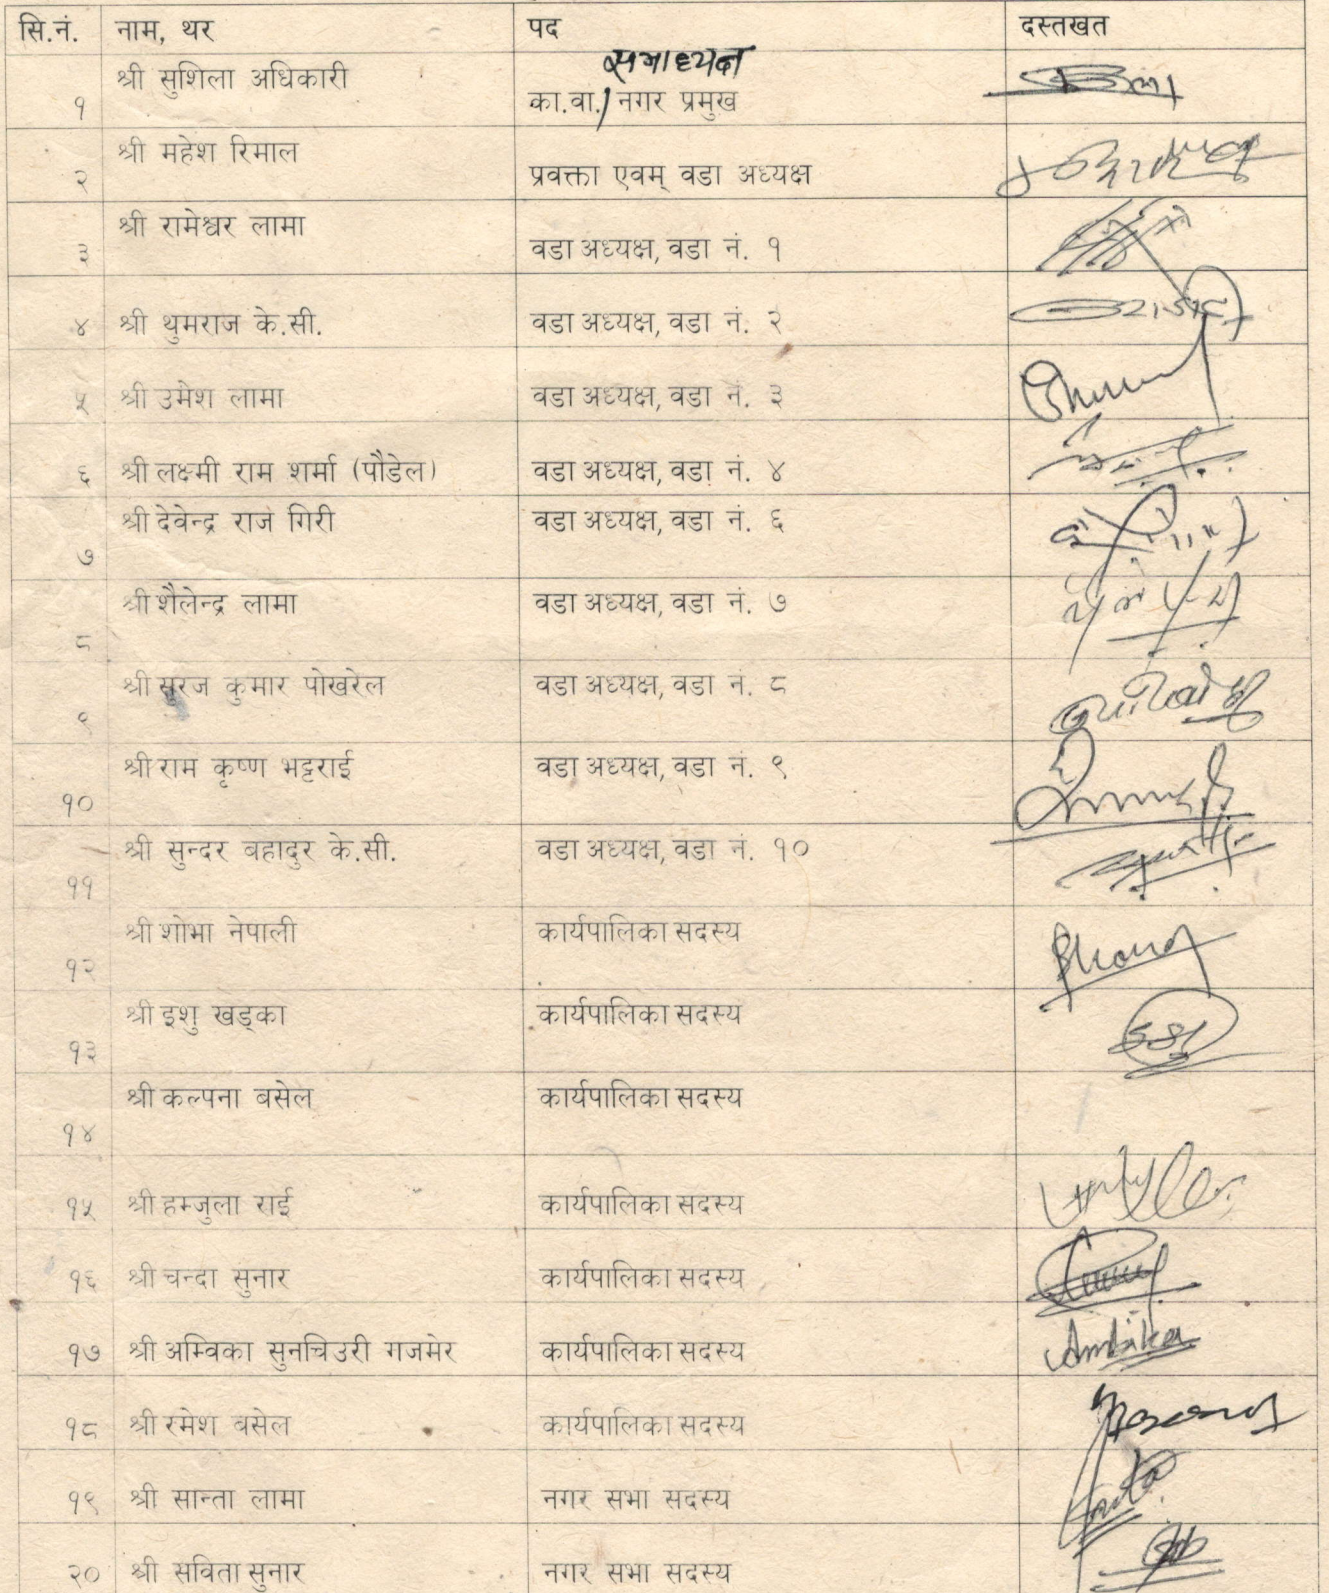 सि.नं. नाम, थर पद दस्तखत
सभाध्यक्ष
१ श्री सुशिला अधिकारी का.वा./नगर प्रमुख
२ श्री महेश रिमाल प्रवक्ता एवम् वडा अध्यक्ष
३ श्री रामेश्वर लामा वडा अध्यक्ष, वडा नं. १
४ श्री थुमराज के.सी. वडा अध्यक्ष, वडा नं. २
५ श्री उमेश लामा वडा अध्यक्ष, वडा नं. ३
६ श्री लक्ष्मी राम शर्मा (पौडेल) वडा अध्यक्ष, वडा नं. ४
७ श्री देवेन्द्र राज गिरी वडा अध्यक्ष, वडा नं. ६
८ श्री शैलेन्द्र लामा वडा अध्यक्ष, वडा नं. ७
९ श्री सुरज कुमार पोखरेल वडा अध्यक्ष, वडा नं. ८
१० श्री राम कृष्ण भट्टराई वडा अध्यक्ष, वडा नं. ९
११ श्री सुन्दर बहादुर के.सी. वडा अध्यक्ष, वडा नं. १०
१२ श्री शोभा नेपाली कार्यपालिका सदस्य
१३ श्री इशु खड्का कार्यपालिका सदस्य
१४ श्री कल्पना बसेल कार्यपालिका सदस्य
१५ श्री हम्जुला राई कार्यपालिका सदस्य
१६ श्री चन्दा सुनार कार्यपालिका सदस्य
१७ श्री अम्विका सुनचिउरी गजमेर कार्यपालिका सदस्य Ambika
१८ श्री रमेश बसेल कार्यपालिका सदस्य
१९ श्री सान्ता लामा नगर सभा सदस्य
२० श्री सविता सुनार नगर सभा सदस्य